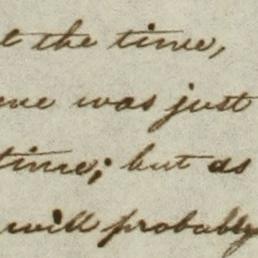 the time,
was just
time; but as
will probably